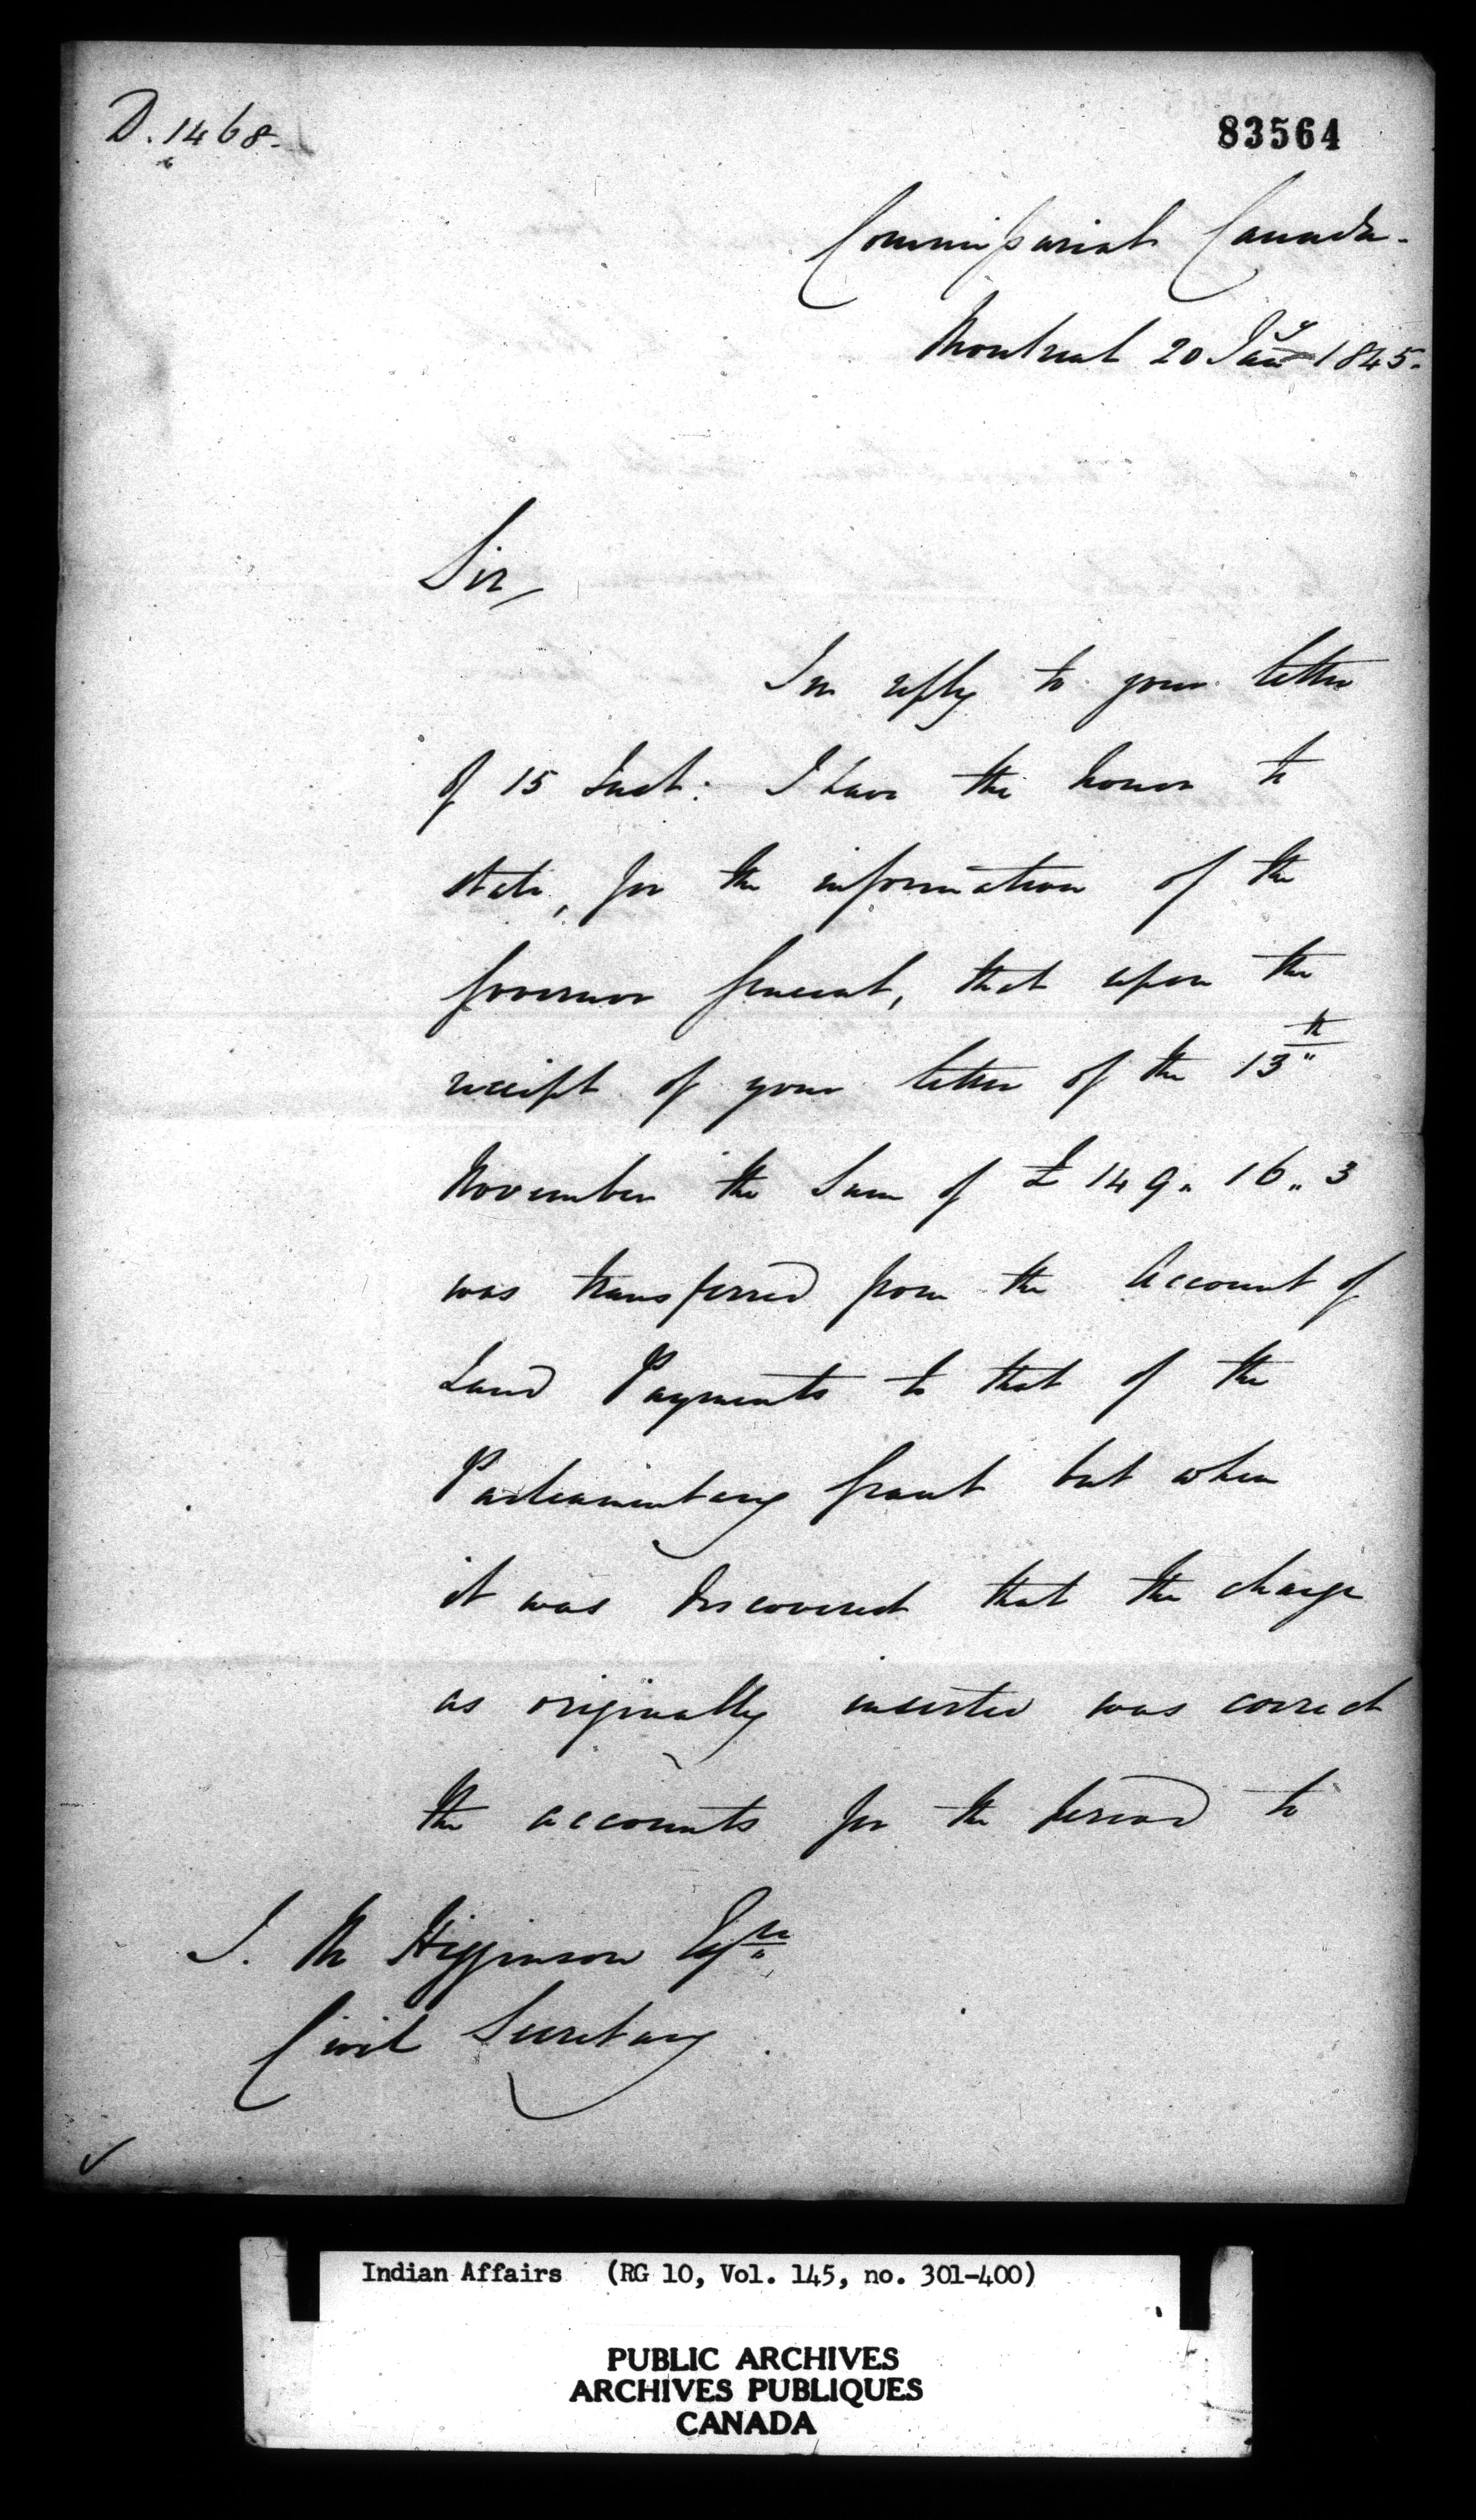 D. 1468.
83564
Commissariat Canada.
Montreal 20 Jany 1845.
Sir,
In reply to your letter
of 15 Inst: I have the honor to
state, for the information of the
Governor General, that upon the
receipt of your letter of the 13th
November the Sum of £149. 16. 3
was transferred from the Account of
Land Payments to that of the
Parliamentary Grant but when
it was discovered that the charge
as originally inserted was correct
the accounts for the period to
J. M Higginson Esqre
Civil Secretary
Indian Affairs (RG 10, Vol. 145, no. 301-400)
PUBLIC ARCHIVES
ARCHIVES PUBLIQUES
CANADA